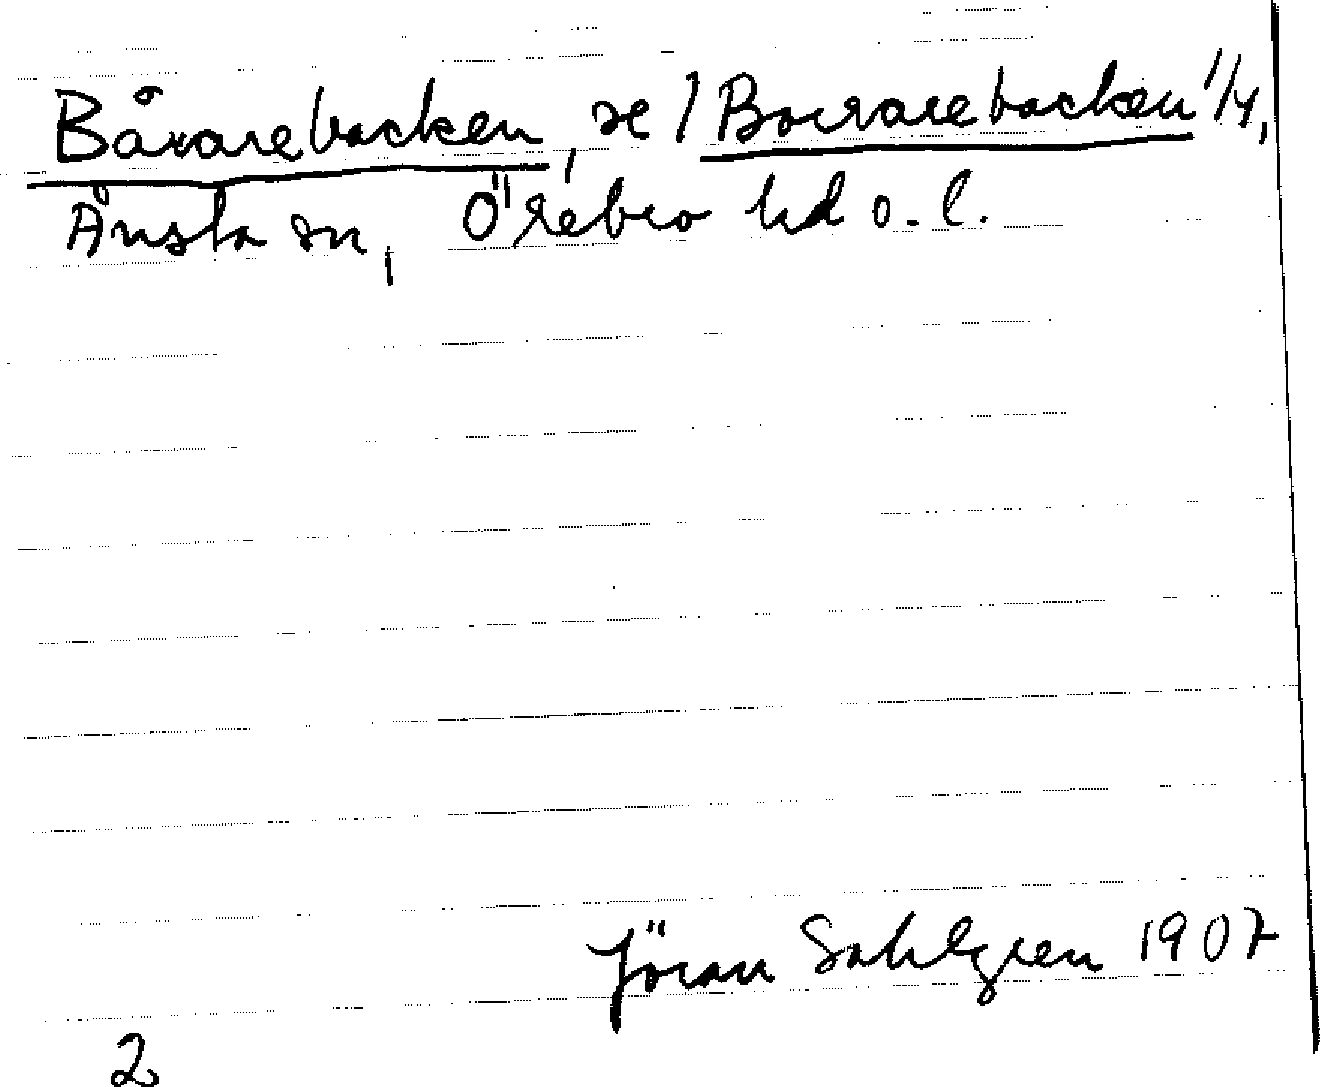 Båvarebacken, se / Bovrarebacken 1/4,
Ånsta sn, Örebro hd o. l.
Jöran Sahlgren 1907
2